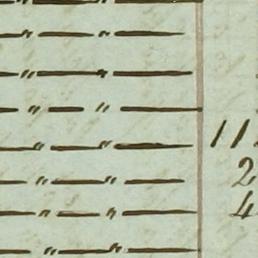 — " — " —
— " — " —
— " — " —
— " — " —
— " — " — 11
— " — " — 2
— " — " — 4
— " — " —